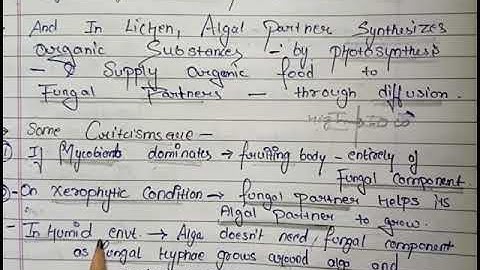 - And In Lichen, Algal Partner Synthesizes
organic Substances - by photosynthesis
- & Supply organic food to
Fungal Partners - through diffusion.
high → low
Some Criticismsare -
① If Mycobiont dominates → fruiting body - entirely of
Fungal Component.
② - On Xerophytic Condition → fungal partner helps its
Algal Partner to grow.
- In Humid envt. → Alga doesn't need fungal component
as fungal hyphae grows around alga and